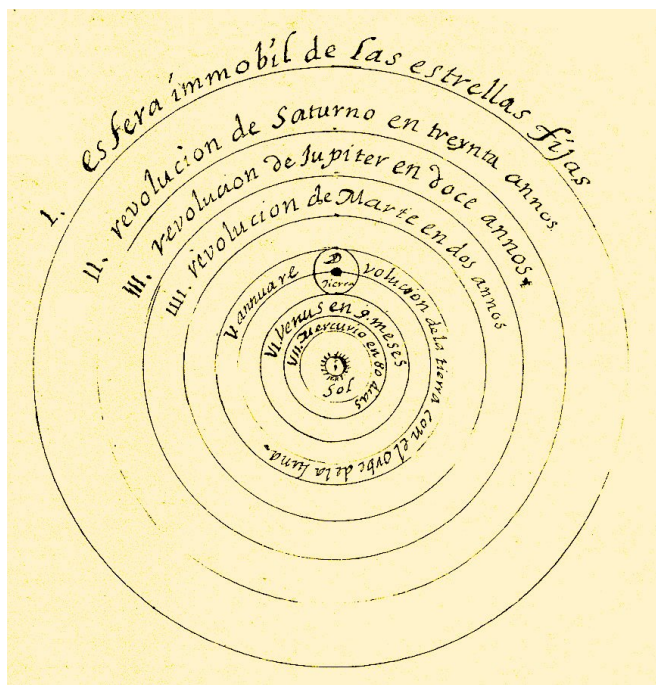 I. esfera immobil de las estrellas fijas
II. revolucion de Saturno en treynta annos.
III. revolucion de Iupiter en doce annos.
IIII. revolucion de Marte en dos annos
V. annua revolucion de la tierra con el orbe de la luna.
Tierra
VI. Venus en 9. meses
VII. Mercurio en 80 dias
Sol